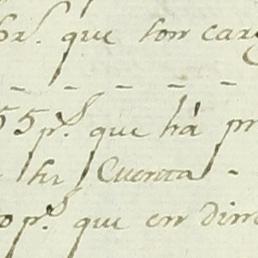 pr.s que son car
55 p.s que há pr
su Cuenta -
0 p.s que en din